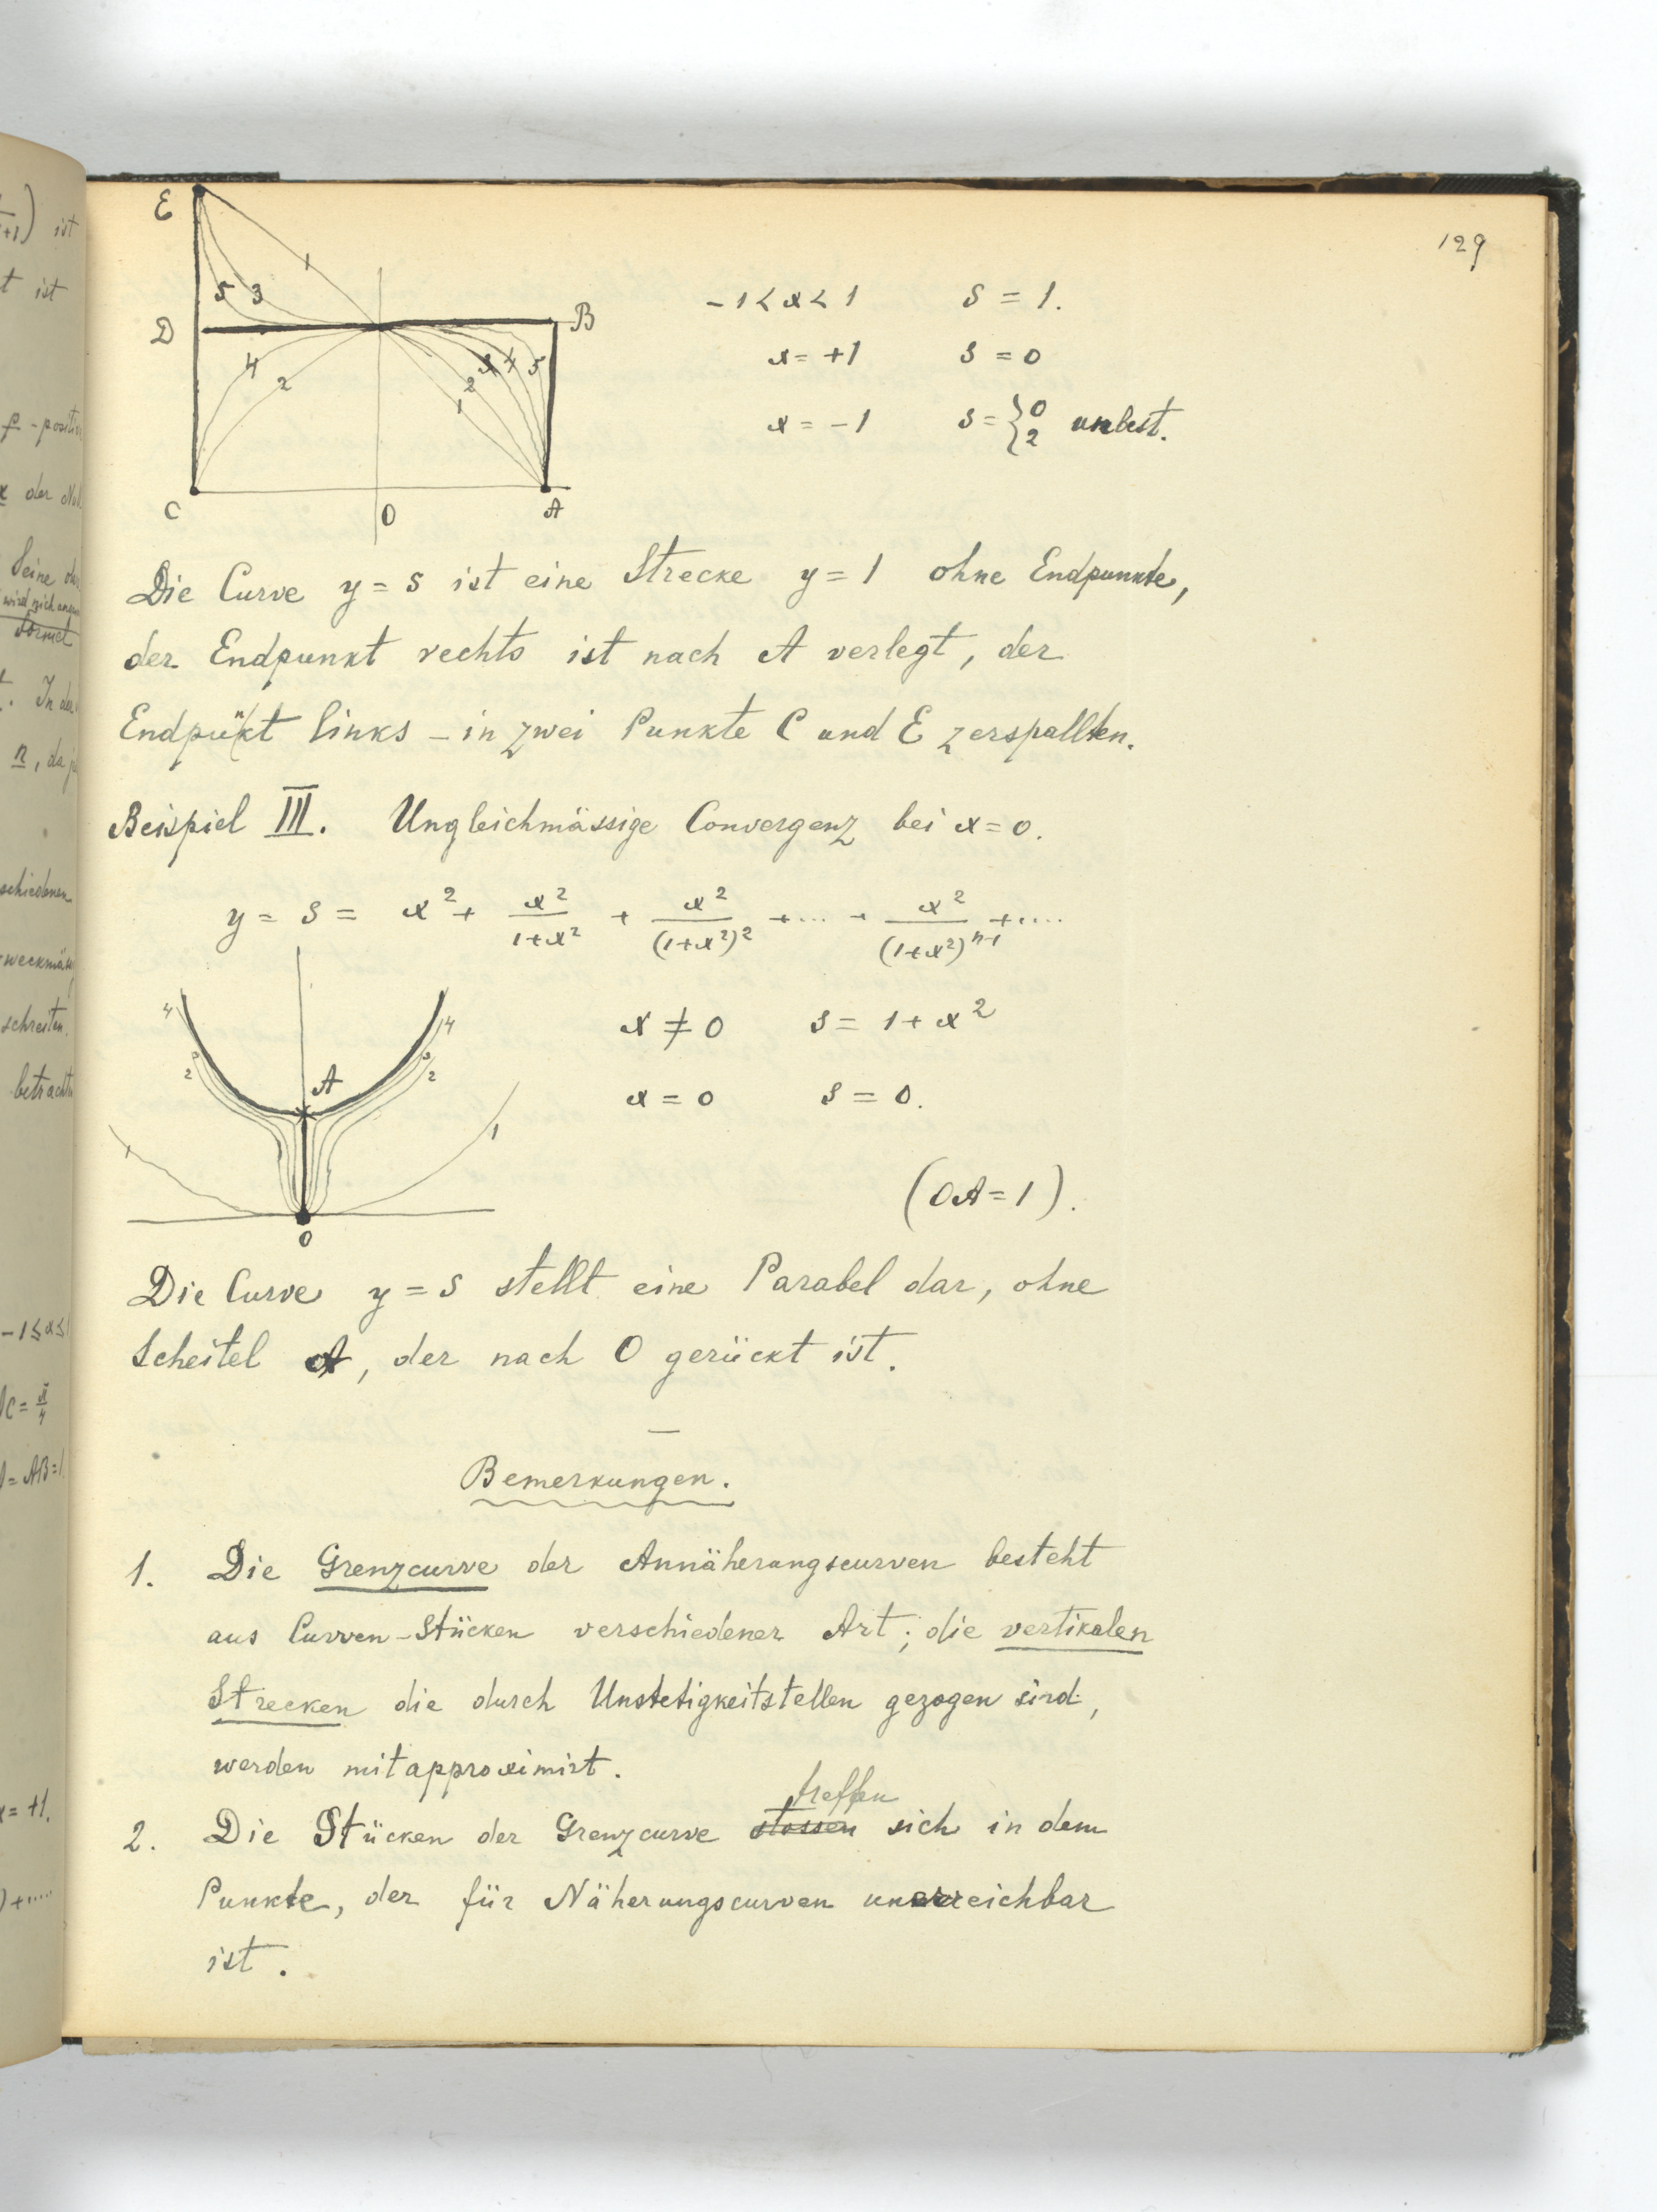 129
E
1
5 3
D
B
4
2
3 4 5
2
1
C
O
A
-1 < x < 1 s = 1.
x = +1 s = 0
x = -1 s = { 0 2 unbest.
Die Curve y = s ist eine Strecke y = 1 ohne Endpunkte,
der Endpunkt rechts ist nach A verlegt, der
Endpunkt links - in zwei Punkte C und E zerspallten.
Beispiel III. Ungleichmässige Convergenz bei x = 0.
y = s = x² + x²/(1+x²) + x²/(1+x²)² + ... + x²/(1+x²)ⁿ⁻¹ + ....
4
4
3
3
2
2
A
1
1
O
x ≠ 0 s = 1 + x²
x = 0 s = 0.
(OA = 1).
Die Curve y = s stellt eine Parabel dar, ohne
Scheitel A, der nach O gerückt ist.
Bemerkungen.
1. Die Grenzcurve der Annäherungscurven besteht
aus Curven-Stücken verschiedener Art; die vertikalen
Strecken die durch Unstetigkeitstellen gezogen sind,
werden mitapproximirt.
treffen
2. Die Stücken der Grenzcurve stossen sich in dem
Punkte, der für Näherungscurven unerreichbar
ist.
+1) ist
t ist
ρ - positiv
x der
Seine
wird sich
t. In der
n, da
schiedenen
schreiten.
betracht
-1 ≤ x ≤ 1
C = π/4
= AB = 1
x = +1.
) + ....